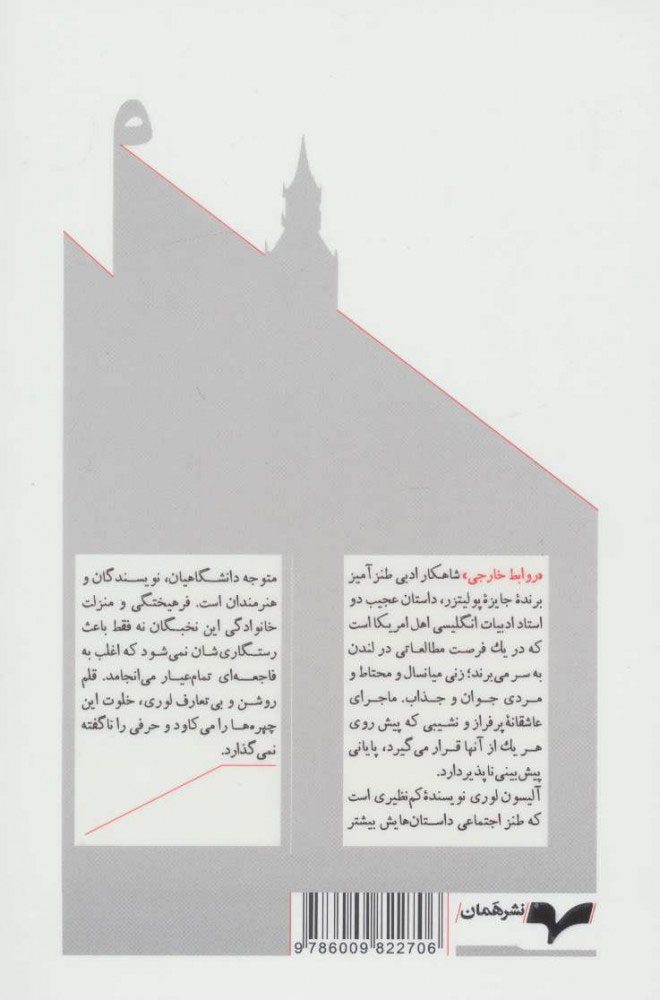 «روابط خارجی» شاهکار ادبی طنزآمیز
برندهٔ جایزهٔ پولیتزر، داستان عجیب دو
استاد ادبیات انگلیسی اهل امریکا است
که در یک فرصت مطالعاتی در لندن
به سر می‌برند؛ زنی میانسال و محتاط و
مردی جوان و جذاب. ماجرای
عاشقانهٔ پرفراز و نشیبی که پیش روی
هر یک از آنها قرار می‌گیرد، پایانی
پیش‌بینی‌ناپذیر دارد.
آلیسون لوری نویسندهٔ کم‌نظیری است
که طنز اجتماعی داستان‌هایش بیشتر
متوجه دانشگاهیان، نویسندگان و
هنرمندان است. فرهیختگی و منزلت
خانوادگی این نخبگان نه فقط باعث
رستگاری‌شان نمی‌شود که اغلب به
فاجعه‌ای تمام‌عیار می‌انجامد. قلم
روشن و بی‌تعارف لوری، خلوت این
چهره‌ها را می‌کاود و حرفی را ناگفته
نمی‌گذارد.
نشر هَمان
9 786009 822706